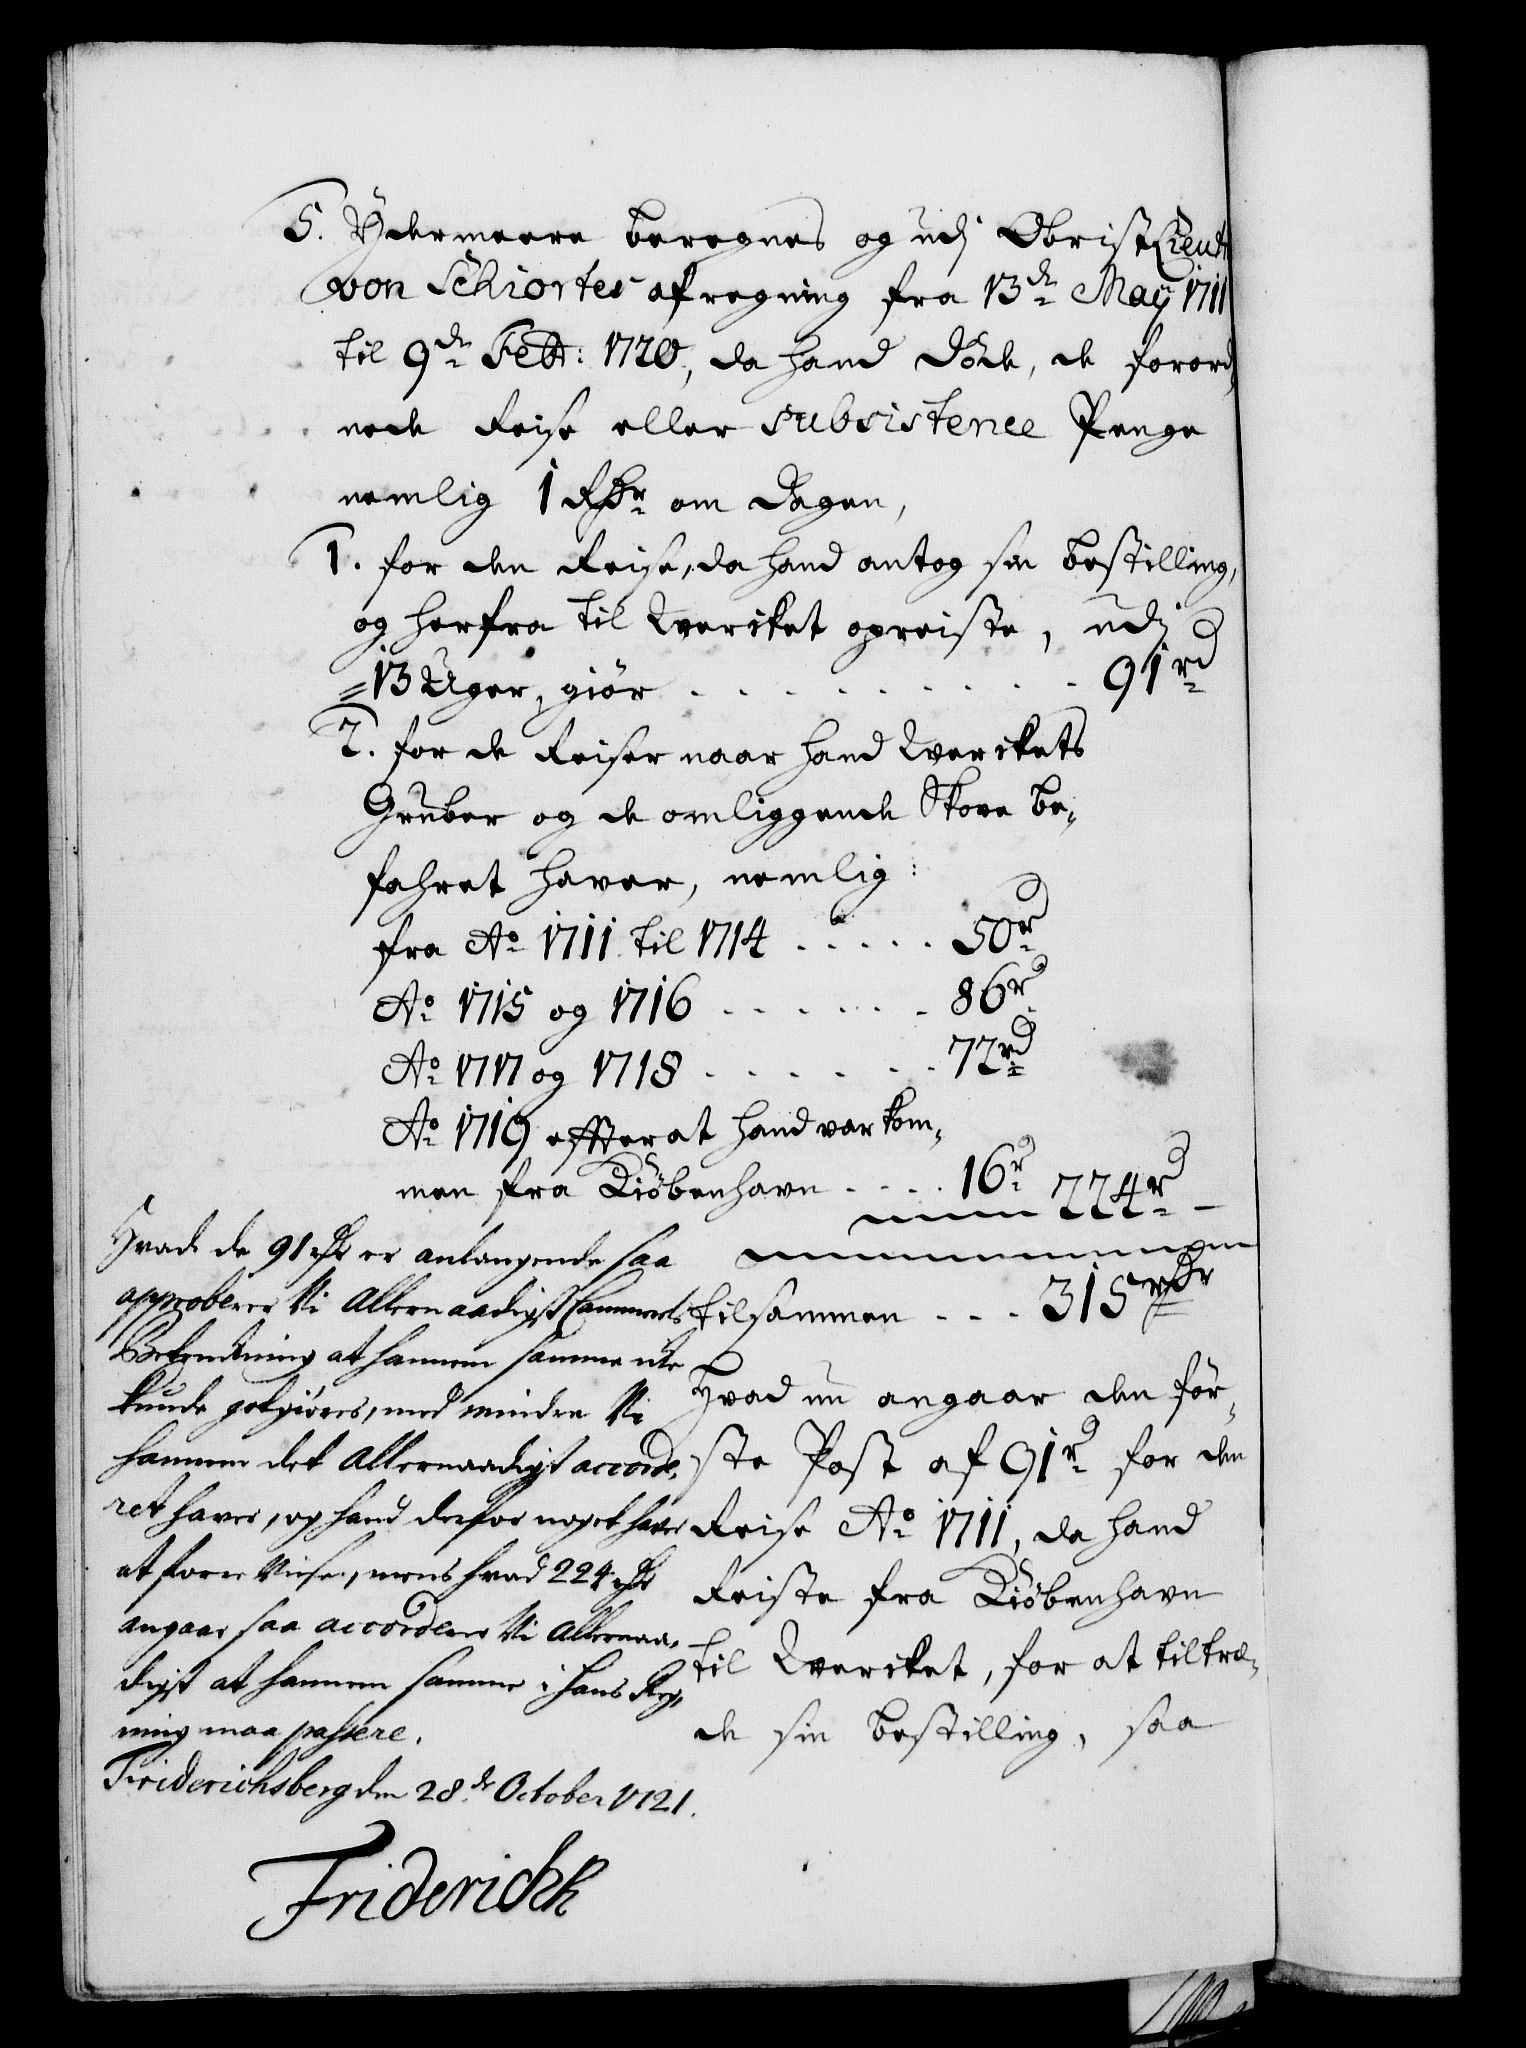 5. Ydermeere beregnes og udj Obrist Lieut
von Schiortes afregning fra 13de May 1711
til 9de Febr: 1720, da hand döde, de forord,
nede Reise eller subsistence Penge
nemlig 1 Rdr om dagen,
1. for den Reise, da hand antog sin bestilling,
og herfra til Wercket opreiste, udj
13 Uger, giör . . . . . . . . . . 91 rd
2. for de Reiser naar hand Werckets
Gruber og de omliggende Skove be,
fahret haver, nemlig:
fra Ao 1711 til 1714 . . . . . 50 rd
Ao 1715 og 1716 . . . . . . 86 rd
Ao 1717 og 1718 . . . . . . 72 rd
Ao 1719 effter at hand var kom,
men fra Kiöbenhavn . . . . 16 rd 224 rd
tilsammen . . . 315 rdr
Hvad nu angaar den för,
ste Post af 91 rd for den
Reise Ao 1711, da hand
Reiste fra Kiöbenhavn
til Wercket, for at tiltræ,
de sin bestilling, saa
Hvad de 91 rdr er anlangende saa
approberer Vi Allernaadigst Cammerets
Betenckning at hannem samme icke
kunde gotgiöres, med mindre Vi
hannem det Allernaadigst accorde,
ret haver, og hand derfor noget haver
at forre Viise, mens hvad 224 rdr
angaar saa accorderer Vi Allernaa,
digst at hannem samme i hans Reg,
ning maa passere.
Friderichsberg den 28de October 1721.
Friderichk